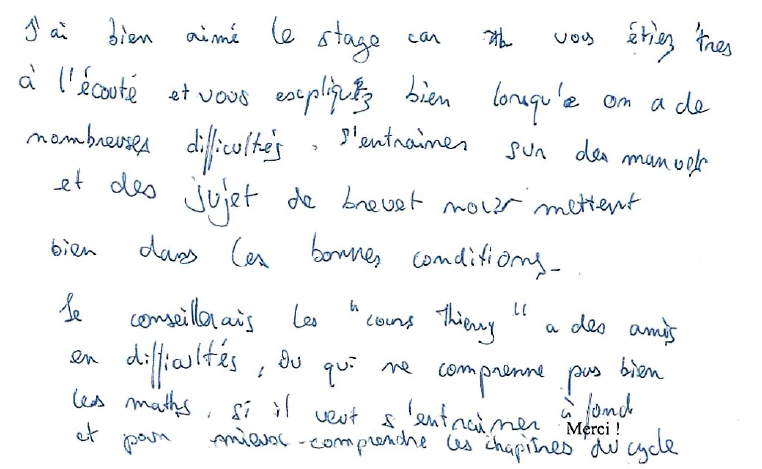 J'ai bien aimé le stage car vous étiez très
à l'écouté et vous escpliquez bien lorsqu'e on a de
nombreuses difficultés, s'entraines sur des manuels
et des sujet de brevet nous mettent
bien dans les bonnes conditions.
Je conseillerais les "cours Thierry" a des amis
en difficultés, ou qui ne comprenne pas bien
les maths, si il veut s'entraîner à fond
Merci !
et pour mieux comprendre les chapitres du cycle